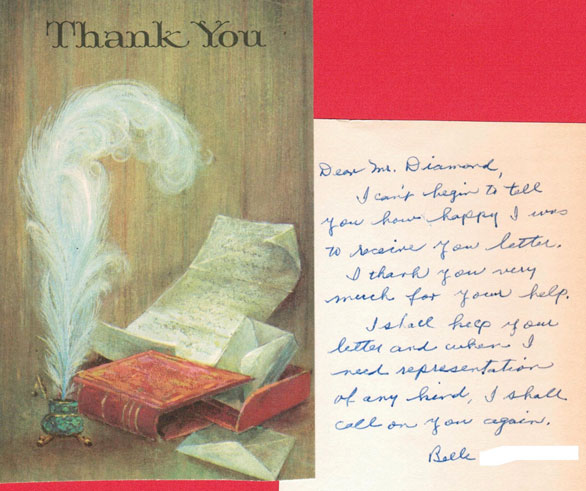 Thank You
Dear Mr. Diamond,
I can't begin to tell
you how happy I was
to receive you letter.
I thank you very
much for your help.
I shall keep your
letter and when I
need representation
of any kind, I shall
call on you again.
Belle